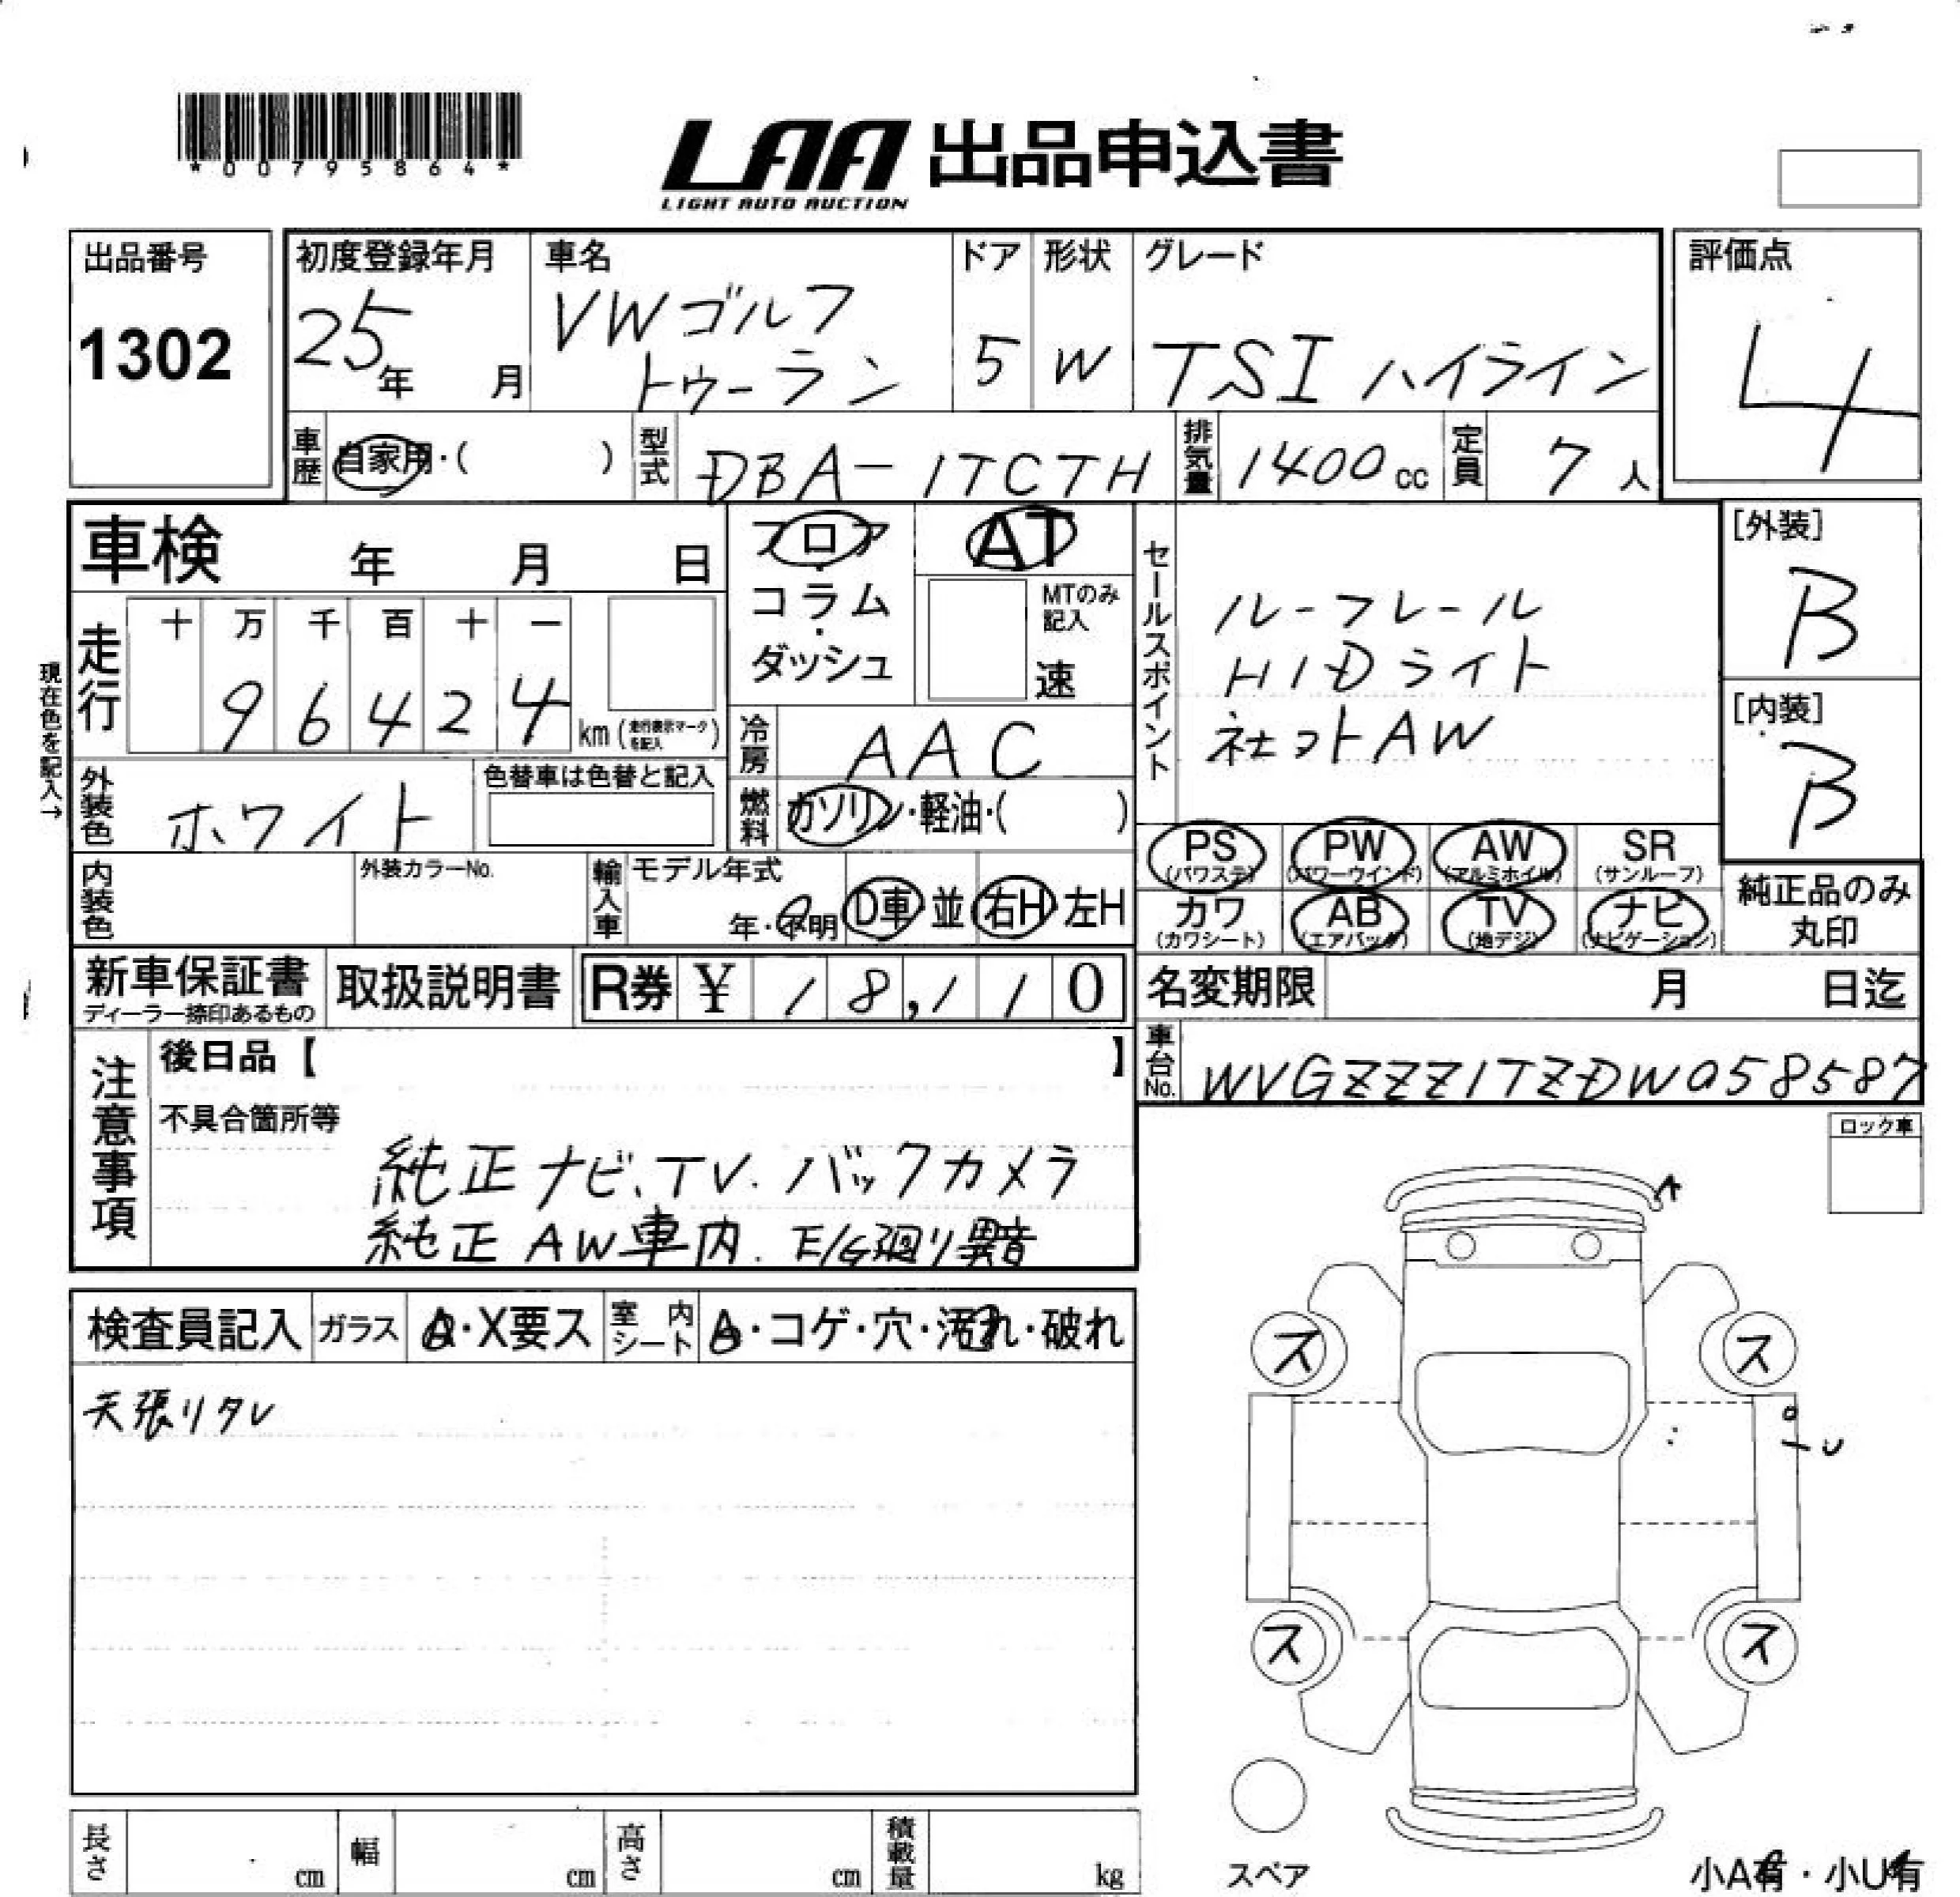 *00795864*
LAA 出品申込書
LIGHT AUTO AUCTION
出品番号
1302
初度登録年月
25年 月
車名
VW ゴルフ
トゥーラン
ドア
5
形状
W
グレード
TSI ハイライン
評価点
4
車歴 自家用・( )
型式 DBA-1TCTH
排気量 1400cc
定員 7人
車検 年 月 日
フロア・コラム・ダッシュ
AT
MTのみ記入
速
走行
十 万 千 百 十 一
9 6 4 2 4 km (走行表示マークを記入)
現在色を記入→
外装色 ホワイト
色替車は色替と記入
冷房 AAC
燃料 ガソリン・軽油・( )
内装色
外装カラーNo.
輸入車
モデル年式
年・不明
D車 並 右H 左H
セールスポイント
ルーフレール
HIDライト
社外AW
[外装]
B
[内装]
B
PS (パワステ)
PW (パワーウインド)
AW (アルミホイル)
SR (サンルーフ)
カワ (カワシート)
AB (エアバック)
TV (地デジ)
ナビ (ナビゲーション)
純正品のみ
丸印
新車保証書
ディーラー捺印あるもの
取扱説明書
R券 ¥ 18,110
名変期限 月 日迄
車台No. WVGZZZ1TZDW058587
注意事項
後日品【 】
不具合箇所等
純正ナビ、TV.バックカメラ
純正AW車内. E/G廻り異音
検査員記入
ガラス A・X要ス
室内シート A・コゲ・穴・汚れ・破れ
天張リタレ
ロック車
A
ス
ス
U
ス
ス
スペア
小A有・小U有
長さ cm
幅 cm
高さ cm
積載量 kg